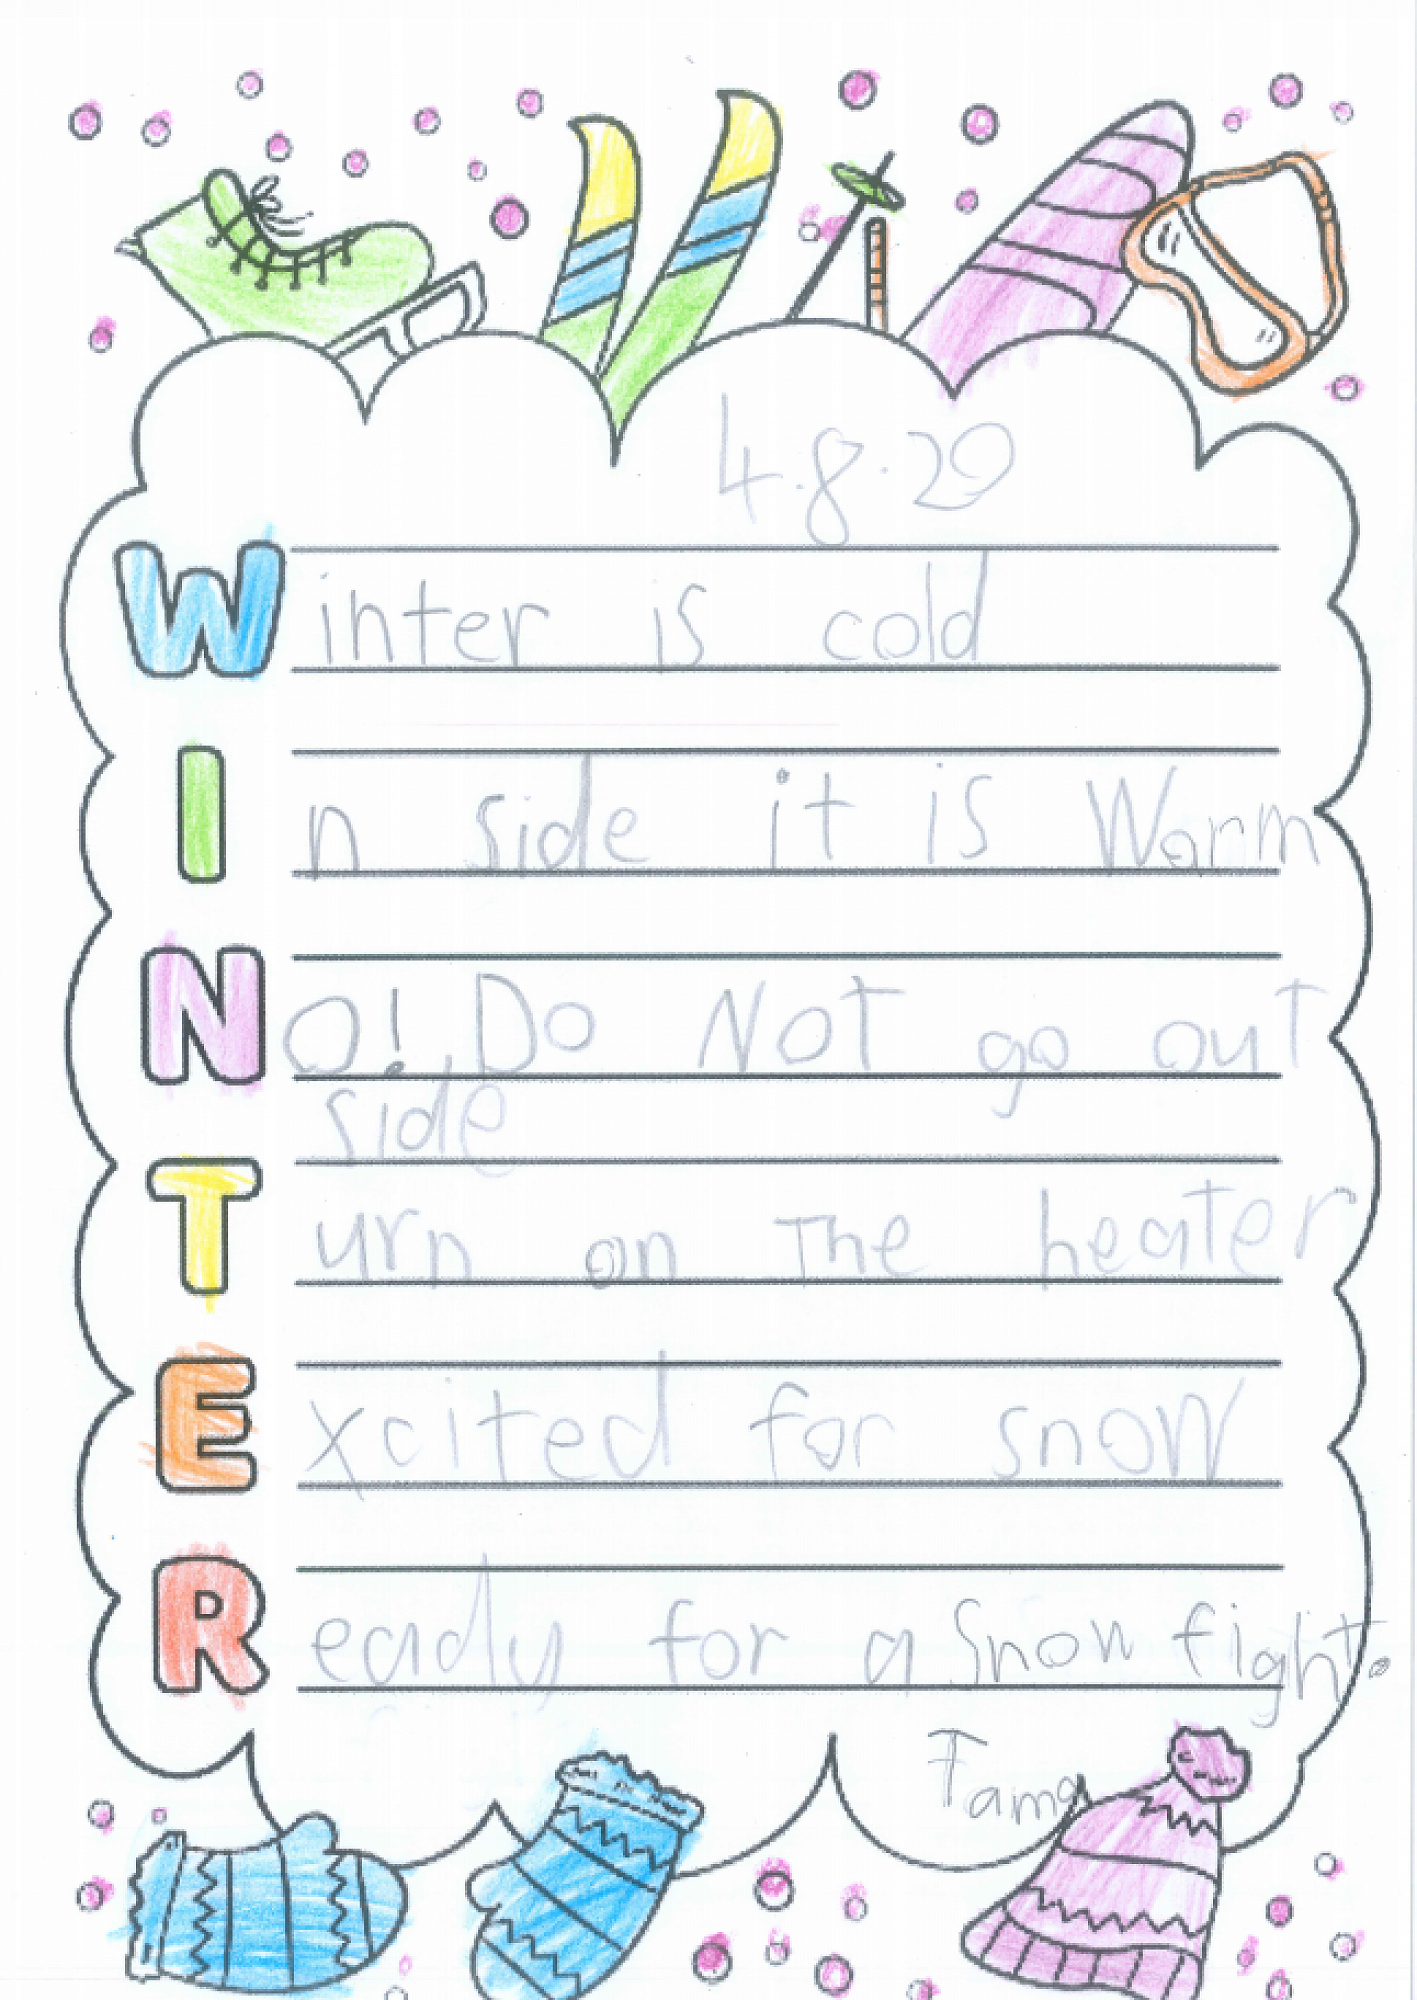 4.8.20
Winter is cold
In side it is Warm
NO! Do Not go out
side
Turn on The heater
Excited for snow
Ready for a Snow fight.
Tama